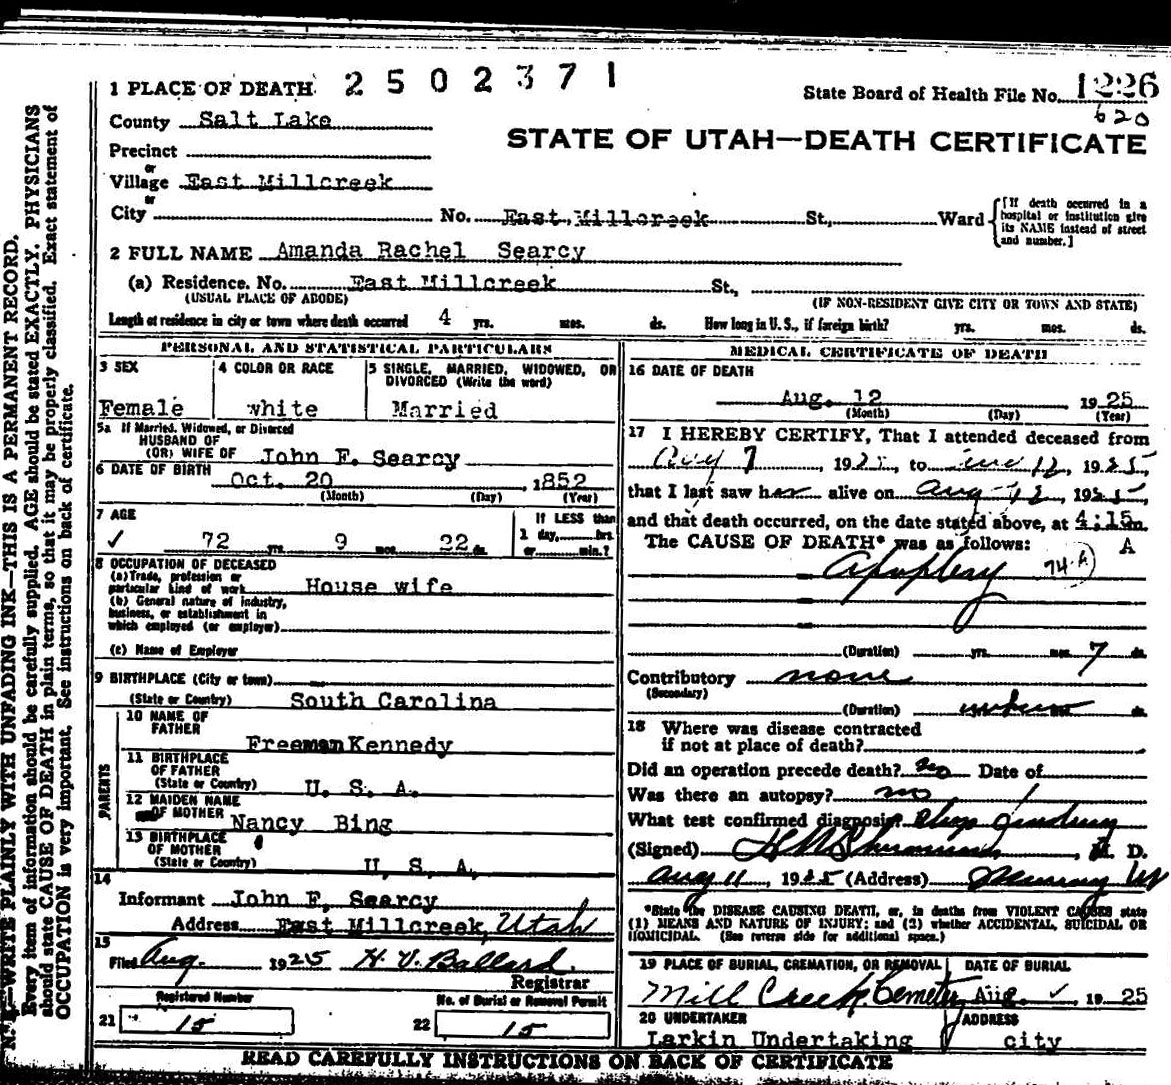 1 PLACE OF DEATH 2502371
State Board of Health File No. 1226
620
County Salt Lake
STATE OF UTAH—DEATH CERTIFICATE
Precinct
or
Village East Millcreek
or
City No. East Millcreek St., Ward
[If death occurred in a hospital or institution give its NAME instead of street and number.]
2 FULL NAME Amanda Rachel Searcy
(a) Residence. No. East Millcreek St.,
(USUAL PLACE OF ABODE) (IF NON-RESIDENT GIVE CITY OR TOWN AND STATE)
Length of residence in city or town where death occurred 4 yrs. mos. ds. How long in U. S., if foreign birth? yrs. mos. ds.
PERSONAL AND STATISTICAL PARTICULARS
3 SEX 4 COLOR OR RACE 5 SINGLE, MARRIED, WIDOWED, OR DIVORCED (Write the word)
Female white Married
5a If Married, Widowed, or Divorced
HUSBAND OF
(OR) WIFE OF John F. Searcy
6 DATE OF BIRTH Oct. 20, 1852
(Month) (Day) (Year)
7 AGE If LESS than
✓ 72 yrs. 9 mos. 22 ds. 1 day, hrs.
or min.?
8 OCCUPATION OF DECEASED
(a) Trade, profession or
particular kind of work House wife
(b) General nature of industry,
business, or establishment in
which employed (or employer)
(c) Name of Employer
9 BIRTHPLACE (City or town)
(State or Country) South Carolina
PARENTS
10 NAME OF
FATHER Freeman Kennedy
11 BIRTHPLACE
OF FATHER
(State or Country) U. S. A.
12 MAIDEN NAME
OF MOTHER Nancy Bing
13 BIRTHPLACE
OF MOTHER
(State or Country) U. S. A.
14
Informant John F. Searcy
Address East Millcreek, Utah
15
Filed Aug. 1925 H. V. Ballard.
Registrar
Registered Number No. of Burial or Removal Permit
21 15 22 15
MEDICAL CERTIFICATE OF DEATH
16 DATE OF DEATH
Aug. 12 1925
(Month) (Day) (Year)
17 I HEREBY CERTIFY, That I attended deceased from
Aug 7, 1925, to 12, 1925,
that I last saw her alive on Aug 12, 1925,
and that death occurred, on the date stated above, at 4:15 m.
The CAUSE OF DEATH* was as follows: A
Apoplexy 74-A
(Duration) yrs. mos. 7 ds.
Contributory none
(Secondary)
(Duration) ds.
18 Where was disease contracted
if not at place of death?
Did an operation precede death? no Date of
Was there an autopsy? no
What test confirmed diagnosis?
(Signed) M. D.
Aug 11, 1925 (Address) Murray Ut
*State the DISEASE CAUSING DEATH, or, in deaths from VIOLENT CAUSES state
(1) MEANS AND NATURE OF INJURY; and (2) whether ACCIDENTAL, SUICIDAL OR
HOMICIDAL. (See reverse side for additional space.)
19 PLACE OF BURIAL, CREMATION, OR REMOVAL DATE OF BURIAL
Mill Creek Cemetery Aug. ✓, 1925
20 UNDERTAKER ADDRESS
Larkin Undertaking city
READ CAREFULLY INSTRUCTIONS ON BACK OF CERTIFICATE
N. B.—WRITE PLAINLY WITH UNFADING INK—THIS IS A PERMANENT RECORD.
Every item of information should be carefully supplied. AGE should be stated EXACTLY. PHYSICIANS
should state CAUSE OF DEATH in plain terms, so that it may be properly classified. Exact statement of
OCCUPATION is very important. See instructions on back of certificate.